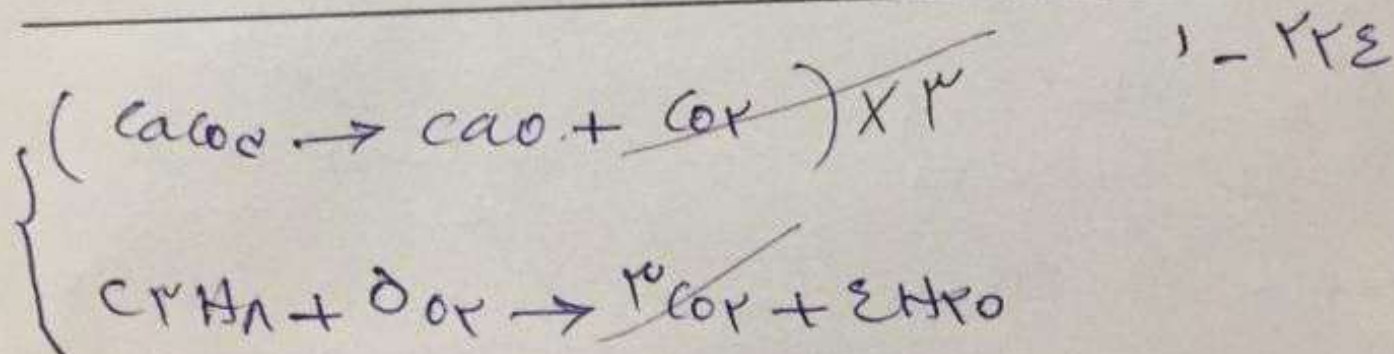 ۱ - ۲۲٤
(CaCo۳ → CaO + Co۲) × ۳
C۳H۸ + ۵O۲ → ۳Co۲ + ٤H۲O